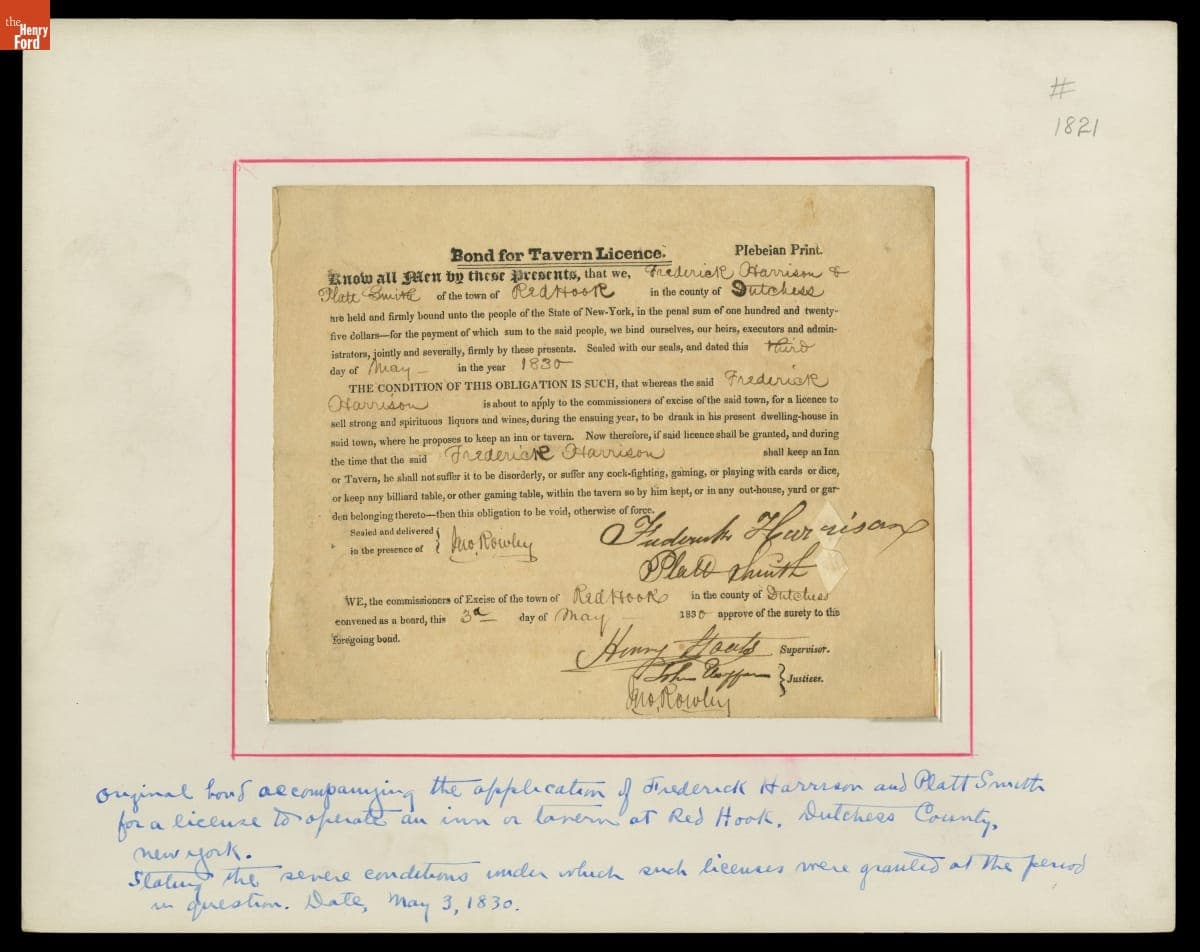 the
Henry
Ford
#
1821
Bond for Tavern Licence. Plebeian Print.
Know all Men by these Presents, that we, Frederick Harrison &
Platt Smith of the town of Red Hook in the county of Dutchess
are held and firmly bound unto the people of the State of New-York, in the penal sum of one hundred and twenty-
five dollars—for the payment of which sum to the said people, we bind ourselves, our heirs, executors and admin-
istrators, jointly and severally, firmly by these presents. Sealed with our seals, and dated this third
day of May in the year 1830
THE CONDITION OF THIS OBLIGATION IS SUCH, that whereas the said Frederick
Harrison is about to apply to the commissioners of excise of the said town, for a licence to
sell strong and spirituous liquors and wines, during the ensuing year, to be drank in his present dwelling-house in
said town, where he proposes to keep an inn or tavern. Now therefore, if said licence shall be granted, and during
the time that the said Frederick Harrison shall keep an Inn
or Tavern, he shall not suffer it to be disorderly, or suffer any cock-fighting, gaming, or playing with cards or dice,
or keep any billiard table, or other gaming table, within the tavern so by him kept, or in any out-house, yard or gar-
den belonging thereto—then this obligation to be void, otherwise of force.
Sealed and delivered
in the presence of Jno. Rowley
Frederick Harrison
Platt Smith
WE, the commissioners of Excise of the town of Red Hook in the county of Dutchess
convened as a board, this 3d day of May 1830 approve of the surety to the
foregoing bond.
Henry Staats Supervisor.
John Justices.
Jno. Rowley
Original bond accompanying the application of Frederick Harrison and Platt Smith
for a license to operate an inn or tavern at Red Hook, Dutchess County,
new york.
Stating the severe conditions under which such licenses were granted at the period
in question. Date, May 3, 1830.